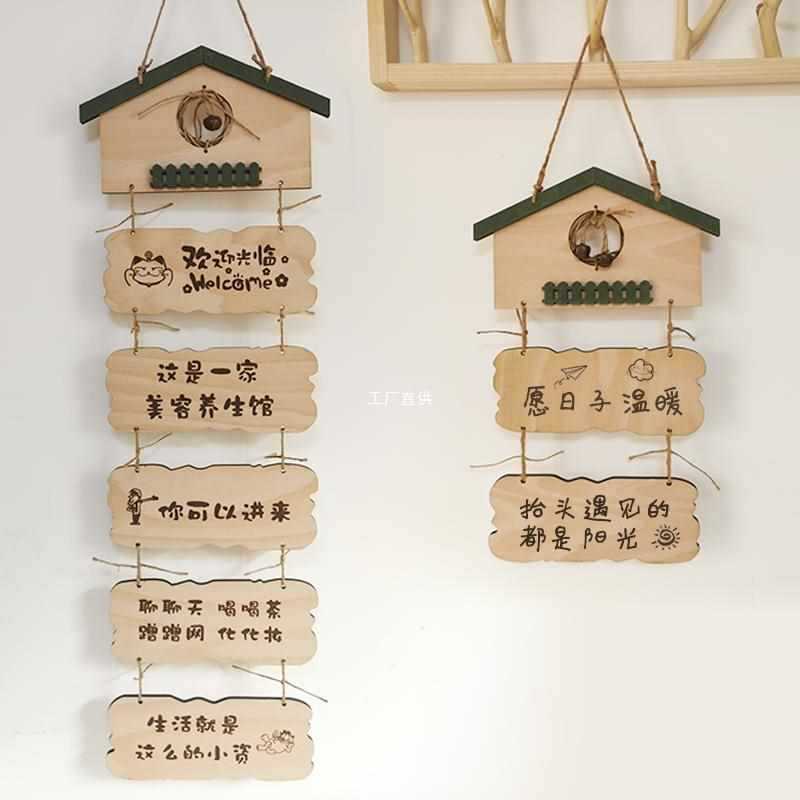 欢迎光临
Welcome
这是一家
美容养生馆
你可以进来
聊聊天 喝喝茶
蹭蹭网 化化妆
生活就是
这么的小资
工厂直供
愿日子温暖
抬头遇见的
都是阳光